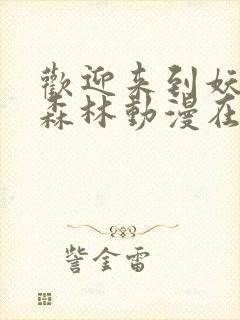 歡迎来到妖
森林動漫在
訾金雷